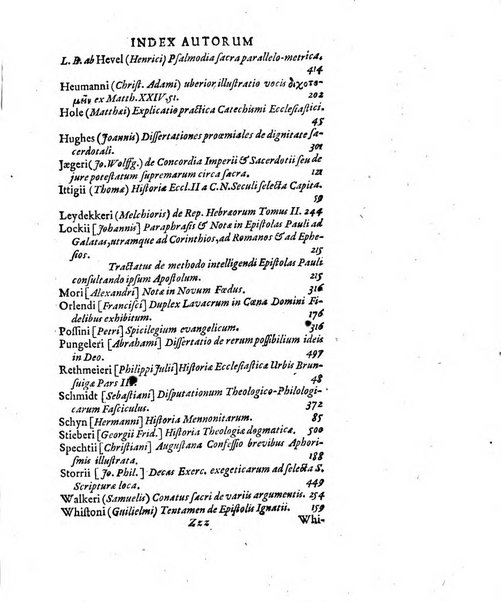 INDEX AUTORUM
L. B. ab Hevel (Henrici) Psalmodia sacra parallelo-metrica.
414
Heumanni (Christ. Adami) uberior illustratio vocis διχοτο-
μῆν ex Matth. XXIV, 51. 202
Hole (Matthai) Explicatio practica Catechismi Ecclesiastici.
45
Hughes (Joannis) Dissertationes proœmiales de dignitate sa-
cerdotali. 301
Jægeri (Jo. Wolffg.) de Concordia Imperii & Sacerdotii seu de
jure potestatum supremarum circa sacra. 121
Ittigii (Thomæ) Historiæ Eccl. II a C. N. Seculi selecta Capita.
59
Leydekkeri (Melchioris) de Rep. Hebraorum Tomus II. 244
Lockii [Johannis] Paraphrasis & Nota in Epistolas Pauli ad
Galatas, utramque ad Corinthios, ad Romanos & ad Ephe-
sios. 215
Tractatus de methodo intelligendi Epistolas Pauli
consultando ipsum Apostolum. 215
Mori [Alexandri] Notæ in Novum Fœdus. 316
Orlendi [Francisci] Duplex Lavacrum in Cœna Domini Fi-
delibus exhibitum. 176
Possini [Petri] Spicilegium evangelicum. 316
Pungeleri [Abrahami] Dissertatio de rerum possibilium ideis
in Deo. 497
Rethmeieri [Philippi Julii] Historiæ Ecclesiasticæ Urbis Brun-
suigæ Pars III. 48
Schmidt [Sebastiani] Disputationum Theologico-Philologi-
carum Fasciculus. 372
Schyn [Hermanni] Historia Mennonitarum. 85
Stieberi [Georgii Frid.] Historia Theologiæ dogmaticæ. 500
Spechtii [Christiani] Augustana Confessio brevibus Aphori-
smis illustrata. 188
Storrii [Jo. Phil.] Decas Exerc. exegeticarum ad selecta S.
Scripturæ loca. 449
Walkeri (Samuelis) Conatus sacri de variis argumentis. 254
Whistoni (Guilielmi) Tentamen de Epistolis Ignatii. 159
Zzz Whi-